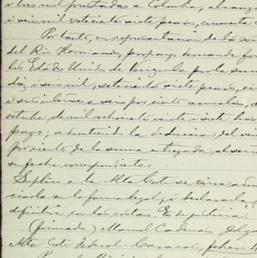 i tres mil prestadas a Colombia, alcanza
i seis mil setecientos siete pesos, cincuenta
Por tanto, en representación de los
del Rio Hermanos, propongo demanda
los Estados Unidos de Venezuela por la suma
diez i seis mil, setecientos siete pesos, cin
i seis por ciento anuales, de
octubre de mil ochocientos veinte i siete has
pago; a virtud de la deducción del vei
por ciento de la suma entregada al
su fecha correspondiente.
Suplico a la Alta Corte se sirva
ciada en la forma legal, i declararla
difinitiva con las costas. Es de justicia.
(firmado) Manuel Cadenas Delga
Alta Corte Federal Caracas, febrero